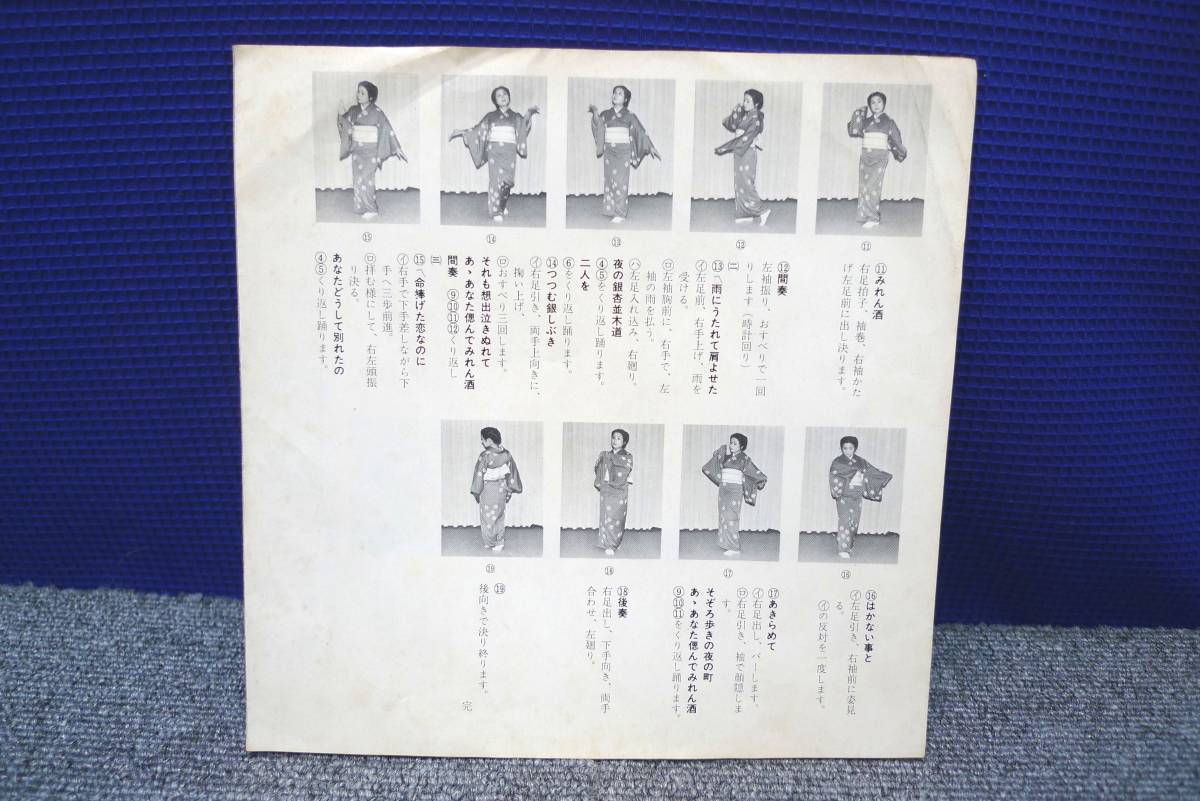 ⑪
⑫
⑬
⑭
⑮
⑪みれん酒
右足拍子、袖巻、右袖かた
げ左足前に出し決ります。
⑫間奏
左袖振り、おすべりで一回
りします（時計回り）
㈡
⑬〽雨にうたれて肩よせた
㋑左足前、右手上げ、雨を
受ける。
㋺左袖胸前に、右手で、左
袖の雨を払う。
㋩左足入れ込み、右廻り。
夜の銀杏並木道
④⑤をくり返し踊ります。
二人を
⑥をくり返し踊ります。
⑭つつむ銀しぶき
㋑右足引き、両手上向きに、
掬い上げ、
㋺おすべり三回します。
それも想出泣きぬれて
あゝあなた偲んでみれん酒
間奏　⑨⑩⑪⑫くり返し
㈢
⑮〽命捧げた恋なのに
㋑右手で下手差しながら下
手へ三歩前進。
㋺拝む様にして、右左頭振
り決る。
あなたどうして別れたの
④⑤をくり返し踊ります。
⑯
⑰
⑱
⑲
⑯はかない事と
㋑左足引き、右袖前に姿見
る。
㋑の反対を一度します。
⑰あきらめて
㋑右足出し、バーします。
㋺右足引き、袖で顔隠しま
す。
そぞろ歩きの夜の町
あゝあなた偲んでみれん酒
⑨⑩⑪をくり返し踊ります。
⑱後奏
右足出し、下手向き、両手
合わせ、左廻り。
⑲
後向きで決り終ります。
完